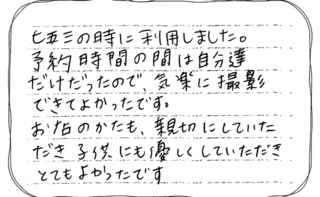 七五三の時に利用しました。
予約時間の間は自分達
だけだったので、気楽に撮影
できてよかったです。
お店のかたも、親切にしていた
だき子供にも優しくしていただき
とてもよかったです